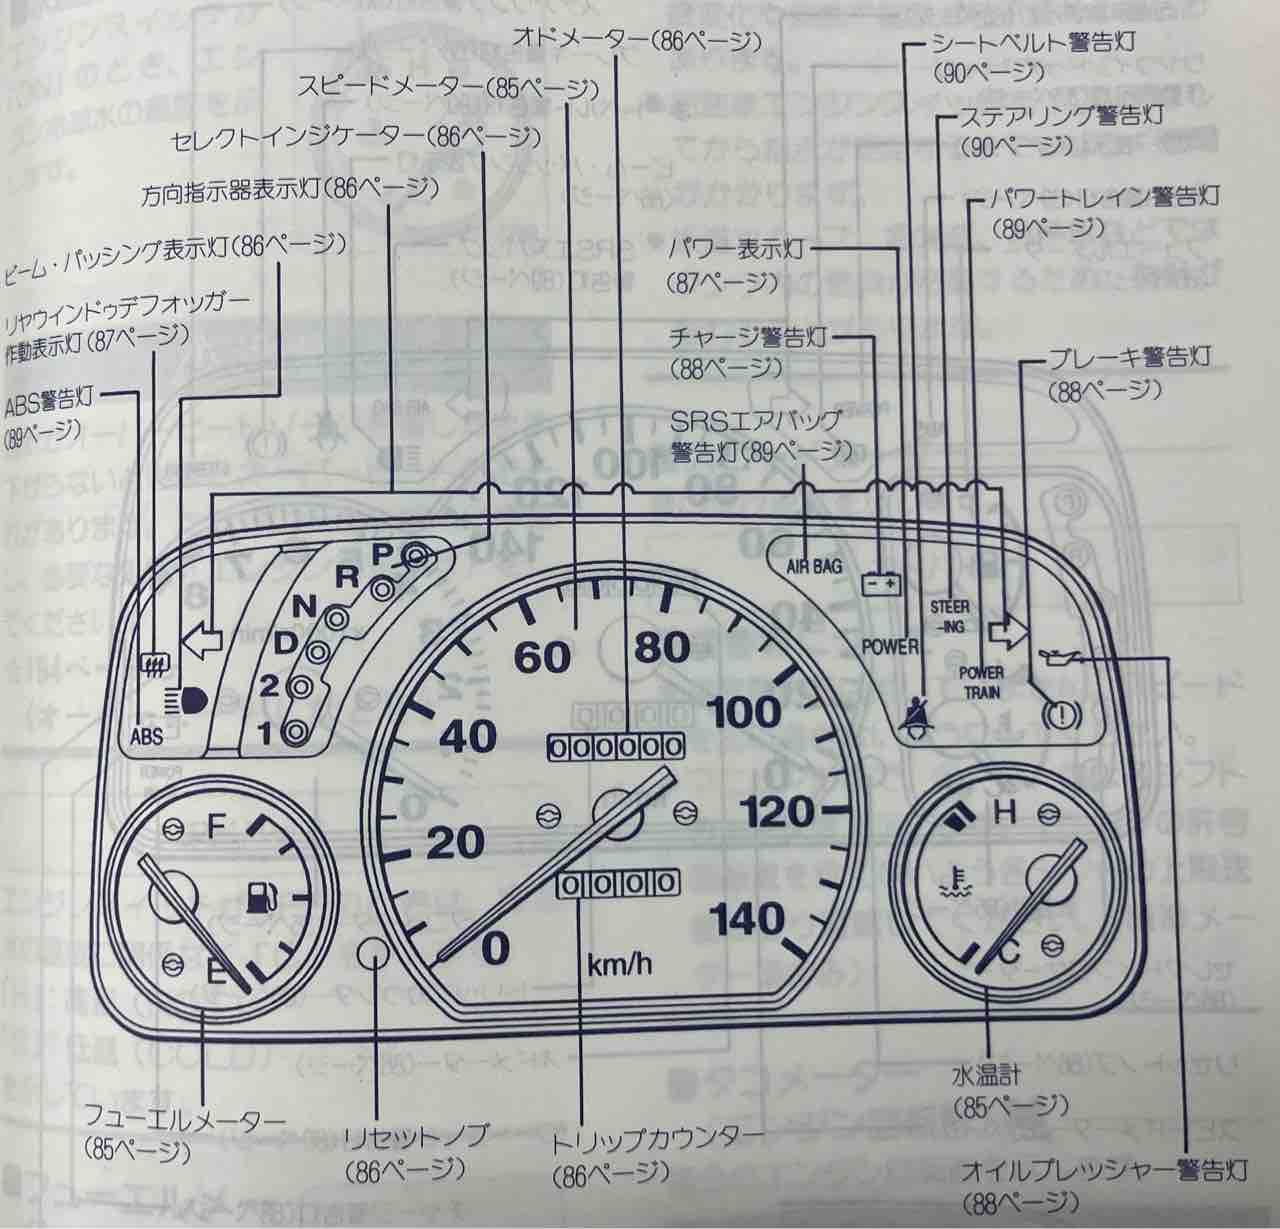 オドメーター(86ページ)
スピードメーター(85ページ)
セレクトインジケーター(86ページ)
方向指示器表示灯(86ページ)
ビーム・パッシング表示灯(86ページ)
リヤウインドゥデフォッガー
作動表示灯(87ページ)
ABS警告灯
(89ページ)
シートベルト警告灯
(90ページ)
ステアリング警告灯
(90ページ)
パワートレイン警告灯
(89ページ)
パワー表示灯
(87ページ)
チャージ警告灯
(88ページ)
ブレーキ警告灯
(88ページ)
SRSエアバッグ
警告灯(89ページ)
P
R
N
D
2
1
ABS
AIR BAG
- +
STEER
-ING
POWER
POWER
TRAIN
(!)
0
20
40
60
80
100
120
140
000000
0000
km/h
F
E
H
C
フューエルメーター
(85ページ)
リセットノブ
(86ページ)
トリップカウンター
(86ページ)
水温計
(85ページ)
オイルプレッシャー警告灯
(88ページ)